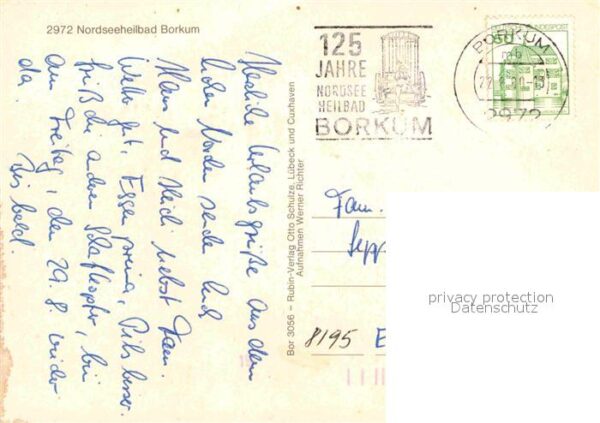 2972 Nordseeheilbad Borkum
Herzliche Urlaubsgrüße aus dem
hohen Norden senden Euch
Hans und Heidi nebst Fam.
Wetter gut, Essen prima, Pils besser.
Grüß die anderen Schafkopfer, bin
am Freitag, den 29. 8. wieder
da. Bis bald.
Bor 3056 – Rubin-Verlag Otto Schulze, Lübeck und Cuxhaven
Aufnahmen Werner Richter
125
JAHRE
NORDSEE
HEILBAD
BORKUM
BORKUM
2972
BUNDESPOST
Fam.
Sepp
8195 E
privacy protection
Datenschutz